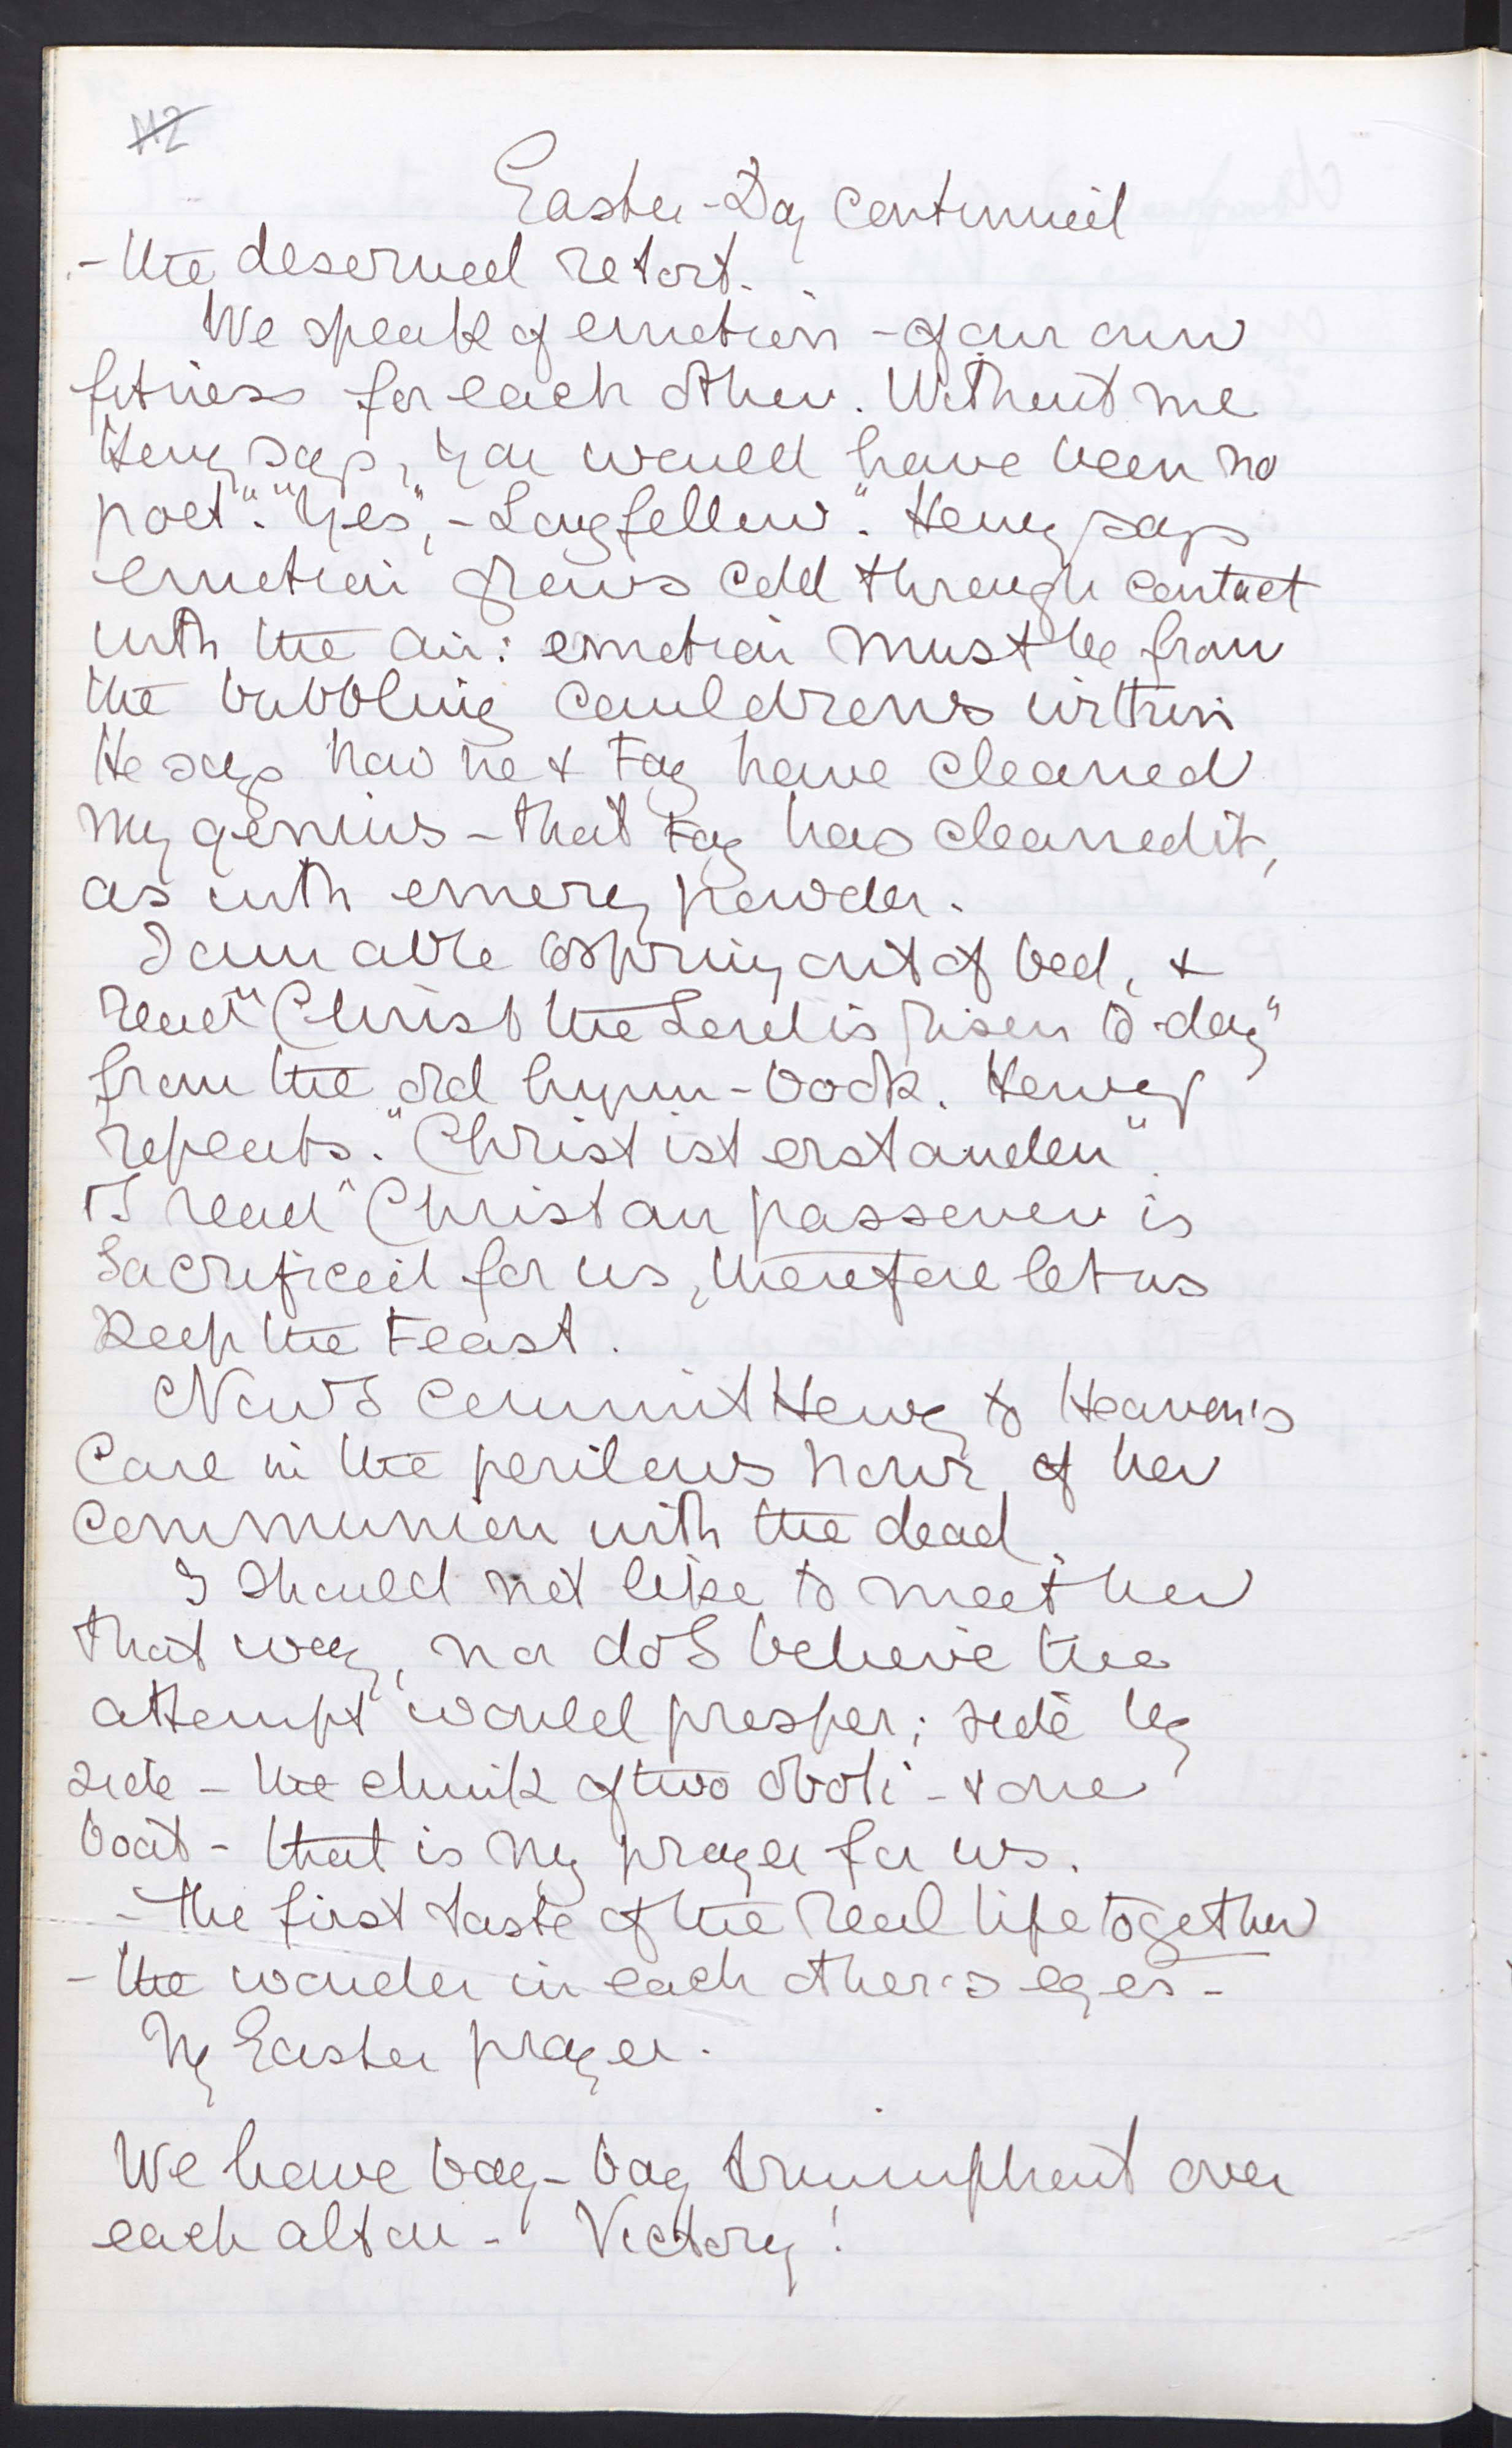 112
Easter-Day continued
- the deserved retort.
We speak of emotion - of our own
fitness for each other. Without me
Henry says, "you would have been no
poet". "Yes", - Longfellow". Henry says
emotion grows cold through contact
with the air: emotion must be from
the bubbling cauldrons within
He says how he & Fay have cleaned
my genius - that Fay has cleaned it,
as with emery powder.
I am able to spring out of bed, &
read "Christ the Lord is risen to-day"
from the old hymn-book. Henry
repeats. "Christ ist erstanden".
I read "Christ our passover is
sacrificed for us, therefore let us
keep the Feast.
Now I commit Henry to Heaven's
care in the perilous hour of her
communion with the dead.
I should not like to meet her
that way, nor do I believe the
attempt would prosper; side by
side - the chink of two oboli - & one
boat - that is my prayer for us.
- The first taste of the real life together
- the wonder in each other's eyes -
My Easter prayer.
We have bay - bay triumphant over
each altar - Victory!